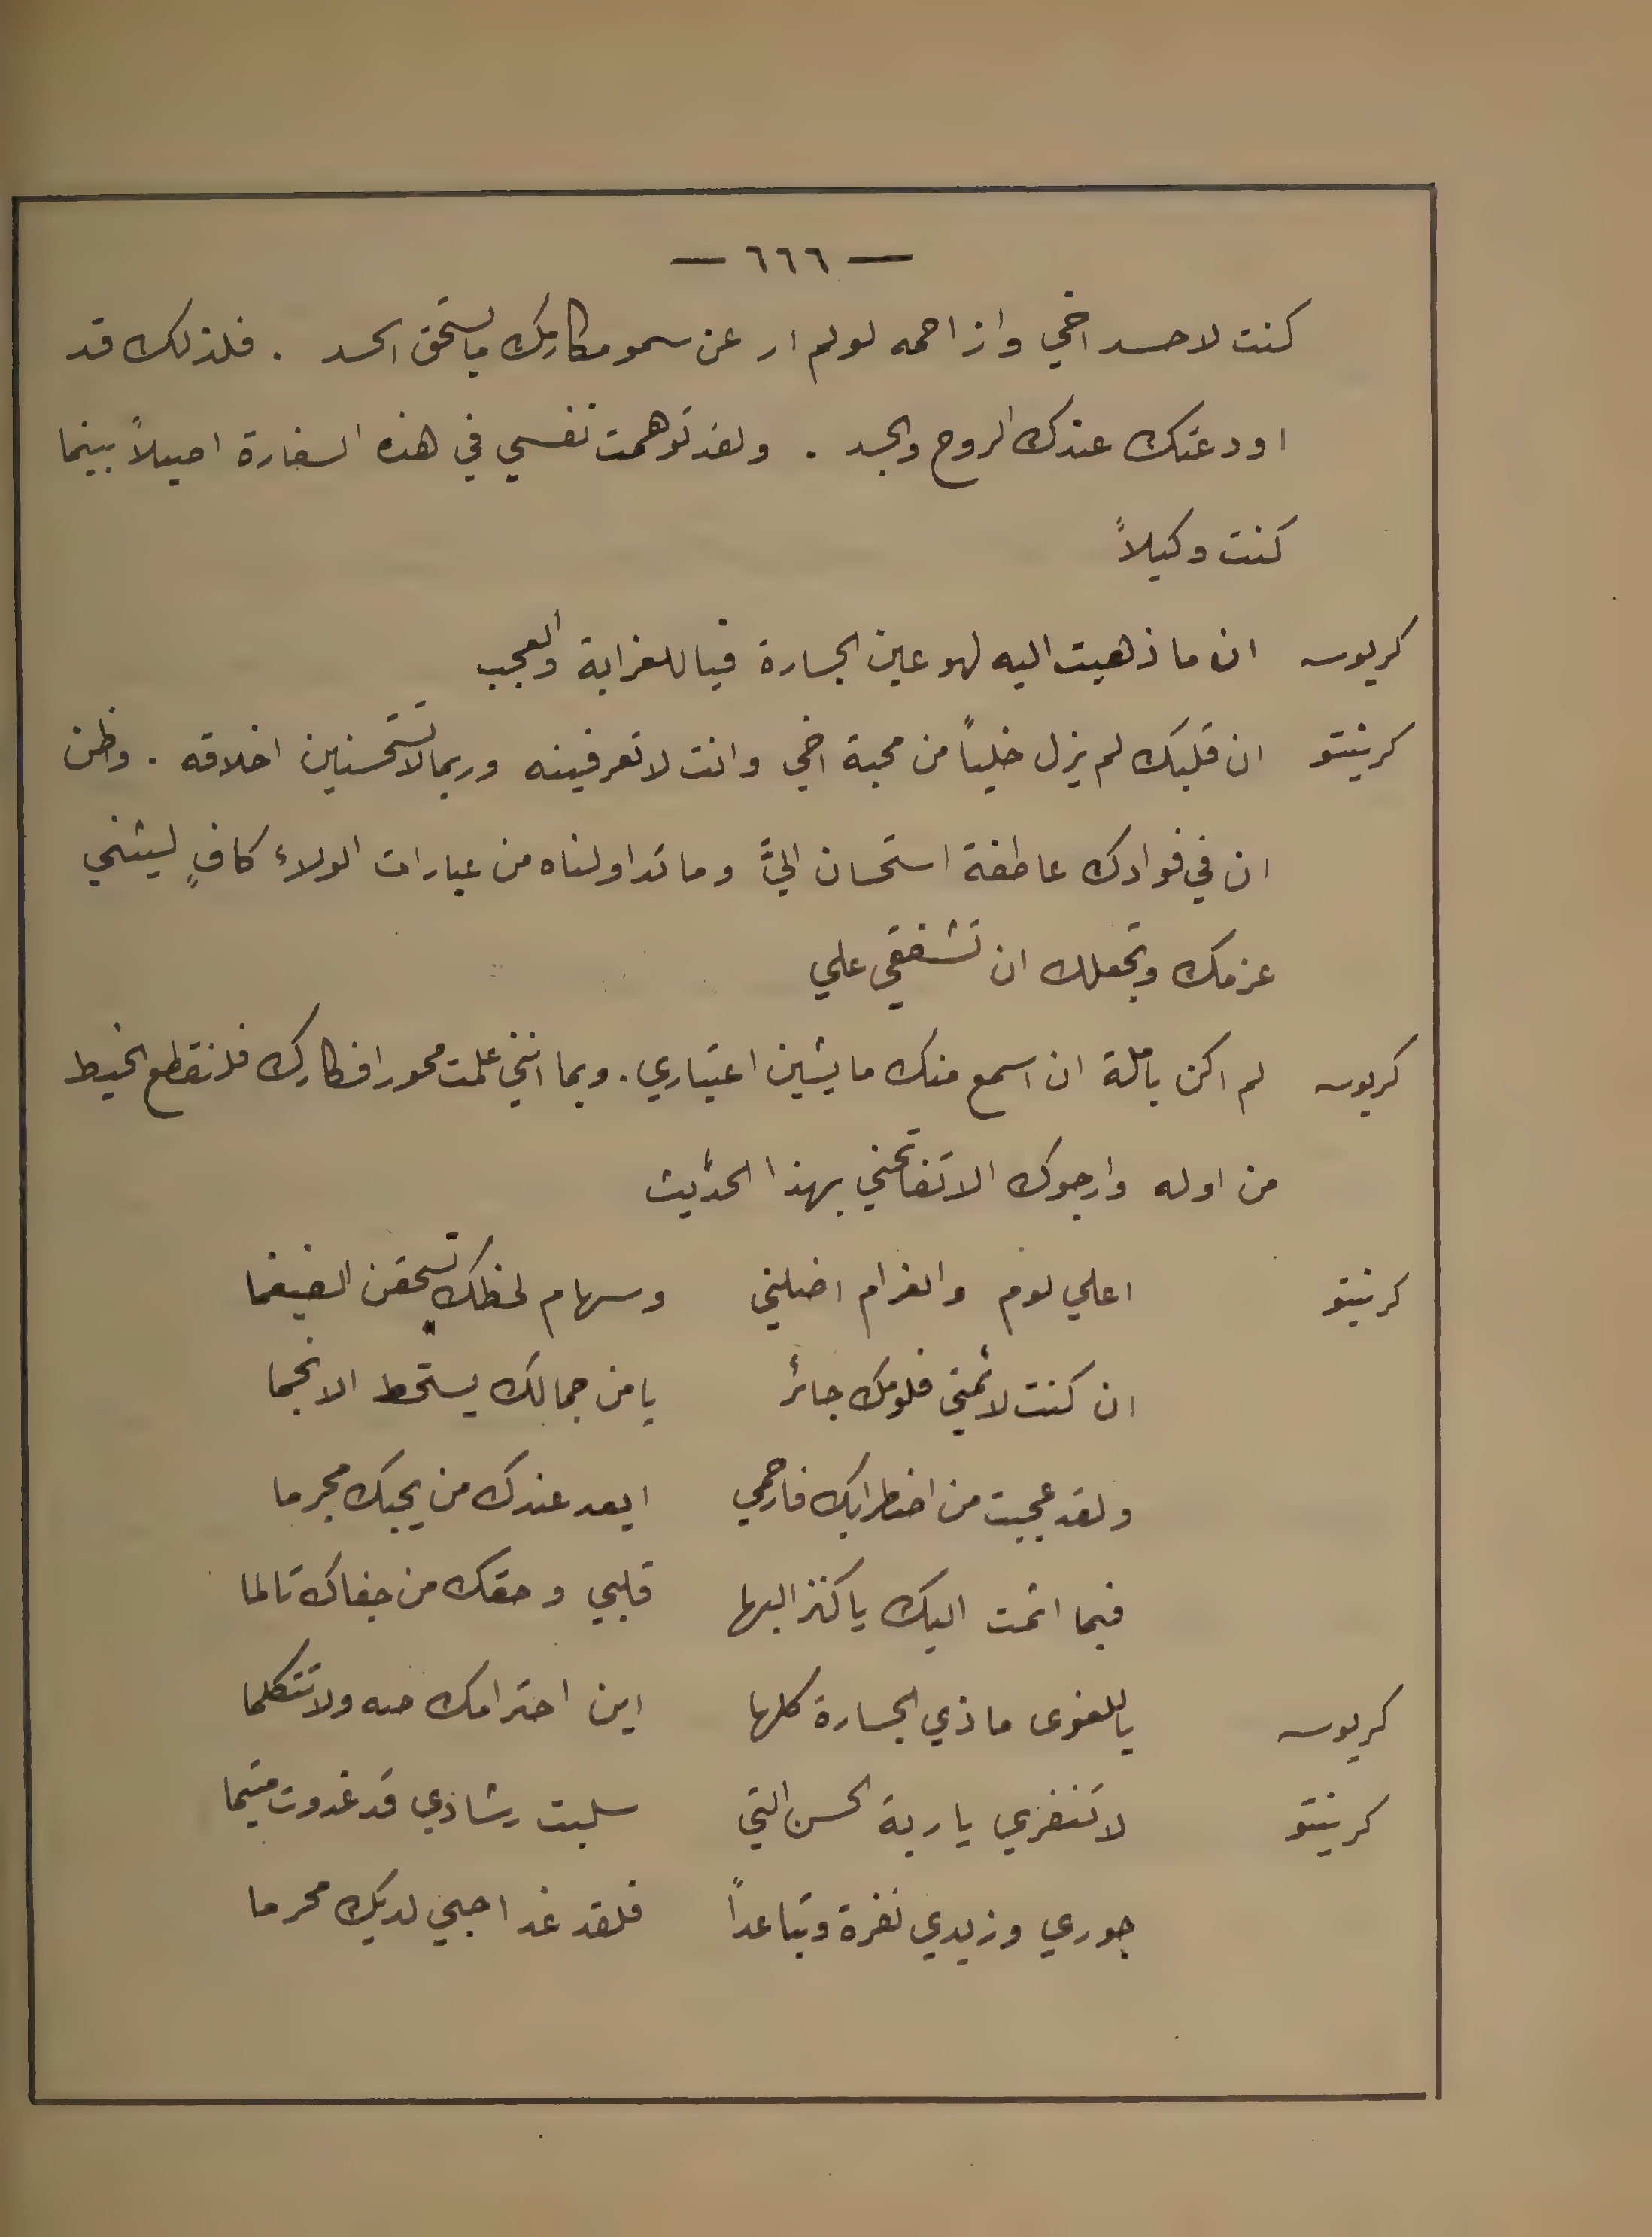 — ٦٦٦ —
كنت لاحسد اخي وازاحمه لولم ار عن سمو مكارمك مايستحق الحسد . فلذلك قد
اودعتك عندك الروح والجسد . ولقد توهمت نفسي في هذه السفارة اصيلاً بينما
كنت وكيلاً
كريوسه ان ما ذهبت اليه لهو عين الجسارة فيا للغرابة والعجب
كرينتو ان قلبك لم يزل خلياً من محبة اخي وانت لا تعرفينه وربما لا تستحسنين اخلاقه . وظن
ان في فوادك عاطفة استحسان اليَّ وما تداولناه من عبارات الولاء كافٍ ليثني
عزمك ويجعلك ان تشفقي علي
كريوسه لم اكن باملة ان اسمع منك ما يشين اعتباري . وبما انني علمت محور افكارك فلنقطع الخيط
من اوله وارجوك الا تفاتحني بهذا الحديث
كرنيتو اعلي لوم والغرام اضلني وسهام لحظك تسحقن الضيغما
ان كنت لائمتي فلومك جائر يا من جمالك يستحط الانجما
ولقد عجبت من اضطرابك فارحمي ايعد عندك من يحبك مجرما
فبما اثمت اليك يا كنز البها قلبي وحقك من جفاك تالما
كريوسه يا للغوى ما ذي الجسارة كلها اين احترامك صه ولا تتكلما
كرينتو لا تنفري يا ربة الحسن التي سلبت رشادي قد غدوت متيما
جوري وزيدي نفرة وتباعداً فلقد غدا حبي لديك محرما